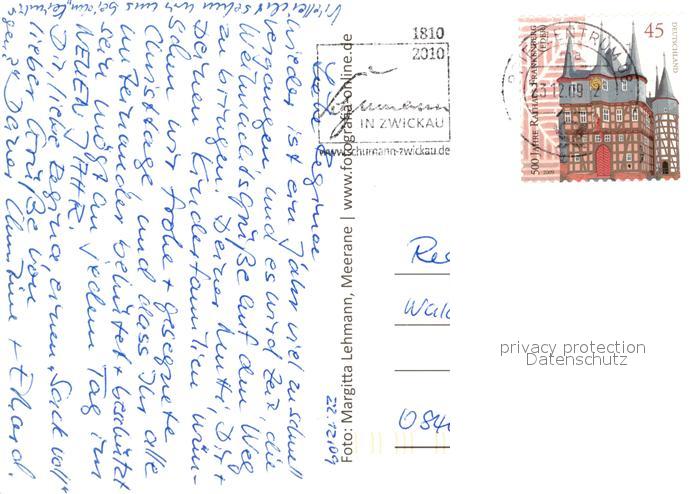 22.12.09
Liebe Regina,
wieder ist ein Jahr viel zu schnell
vergangen, und es wird Zeit, die
Weihnachtsgrüße auf den Weg
zu bringen. Deiner Mutti, Dir +
Deinen Kinderfamilien wün-
schen wir frohe + gesegnete
Christtage und dass Ihr alle
miteinander behütet + beschützt
sein mögt an jedem Tag im
NEUEN JAHR.
Dir, liebe Regina, einen "Sack voll"
lieber Grüße von
Deiner Christine + Eckhard.
Vielleicht sehen wir uns bei
Foto: Margitta Lehmann, Meerane | www.fotografie-online.de
1810
2010
Schumann
IN ZWICKAU
www.schumann-zwickau.de
BRIEFZENTRUM
23.12.09
500 JAHRE RATHAUS FRANKENBERG
(EDER)
45
DEUTSCHLAND
2009
Re
Wald
084
privacy protection
Datenschutz